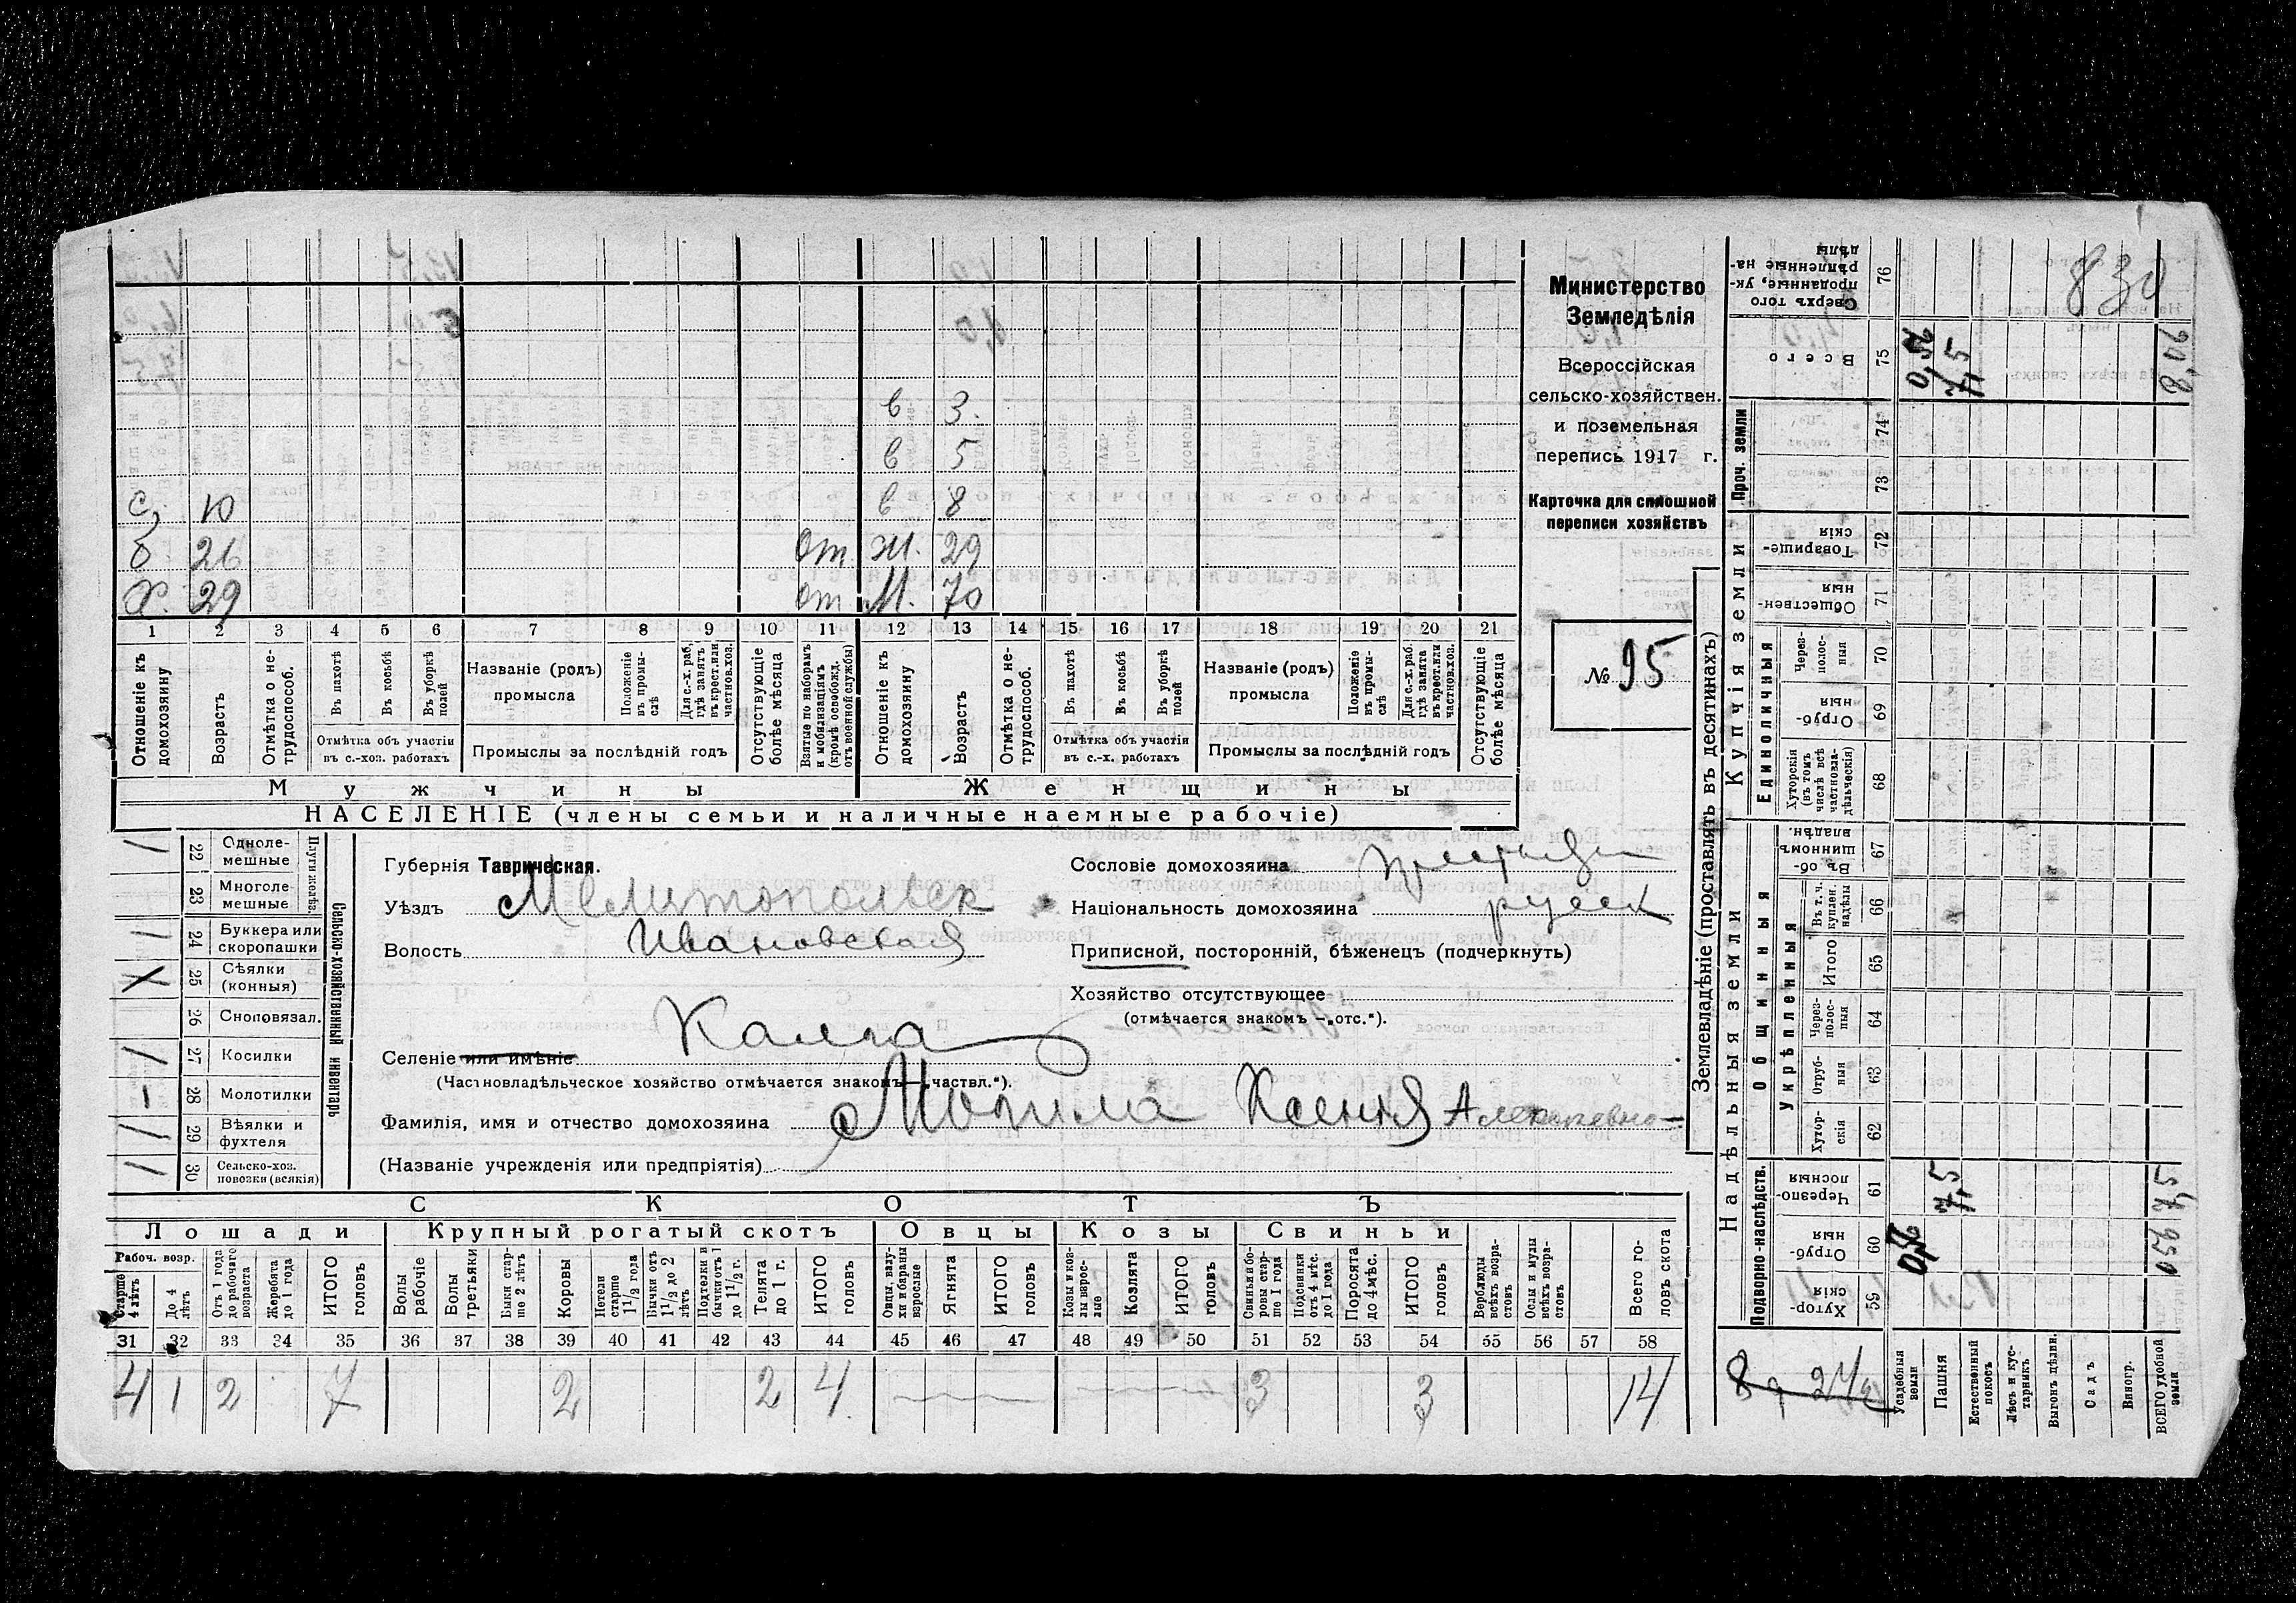 Министерство
Земледѣлія
Всероссійская
сельско-хозяйствен.
и поземельная
перепись 1917 г.
Карточка для сплошной
переписи хозяйствъ
№ 95
830
в 3.
в 5
с 10 в 8
б. 26 от. Ж. 29
Х. 29 от М. 70
1 2 3 4 5 6 7 8 9 10 11 12 13 14 15 16 17 18 19 20 21
Отношеніе къ домохозяину
Возрастъ
Отмѣтка о нетрудоспособ.
Въ пахотѣ
Въ косьбѣ
Въ уборкѣ полей
Отмѣтка объ участіи
въ с.-хоз. работахъ
Названіе (родъ)
промысла
Положеніе въ промыслѣ
Для с.-х. раб. гдѣ занятъ въ крест. или частнов. хоз.
Промыслы за послѣдній годъ
Отсутствующіе болѣе мѣсяца
Взятые по наборамъ и мобилизаціямъ (кромѣ освобожд. отъ военной службы)
Отношеніе къ домохозяину
Возрастъ
Отмѣтка о нетрудоспособ.
Въ пахотѣ
Въ косьбѣ
Въ уборкѣ полей
Отмѣтка объ участіи
въ с.-х. работахъ
Названіе (родъ)
промысла
Положеніе въ промыслѣ
Для с.-х. раб. гдѣ занята въ крест. или частнов. хоз.
Промыслы за послѣдній годъ
Отсутствующіе болѣе мѣсяца
Мужчины Женщины
НАСЕЛЕНІЕ (члены семьи и наличные наемные рабочіе)
Сельско-хозяйственный инвентарь
Плуги желѣз.
22 Однолемешные /
23 Многолемешные
24 Буккера или скоропашки /
25 Сѣялки (конныя) X
26 Сноповязал.
27 Косилки /
28 Молотилки –
29 Вѣялки и фухтеля /
30 Сельско-хоз. повозки (всякія) /
Губернія Таврическая.
Уѣздъ Мелитопольск
Волость Ивановская
Селеніе или имѣніе Калга
(Частновладѣльческое хозяйство отмѣчается знакомъ—„частвл.“).
Сословіе домохозяина
Національность домохозяина русск
Приписной, посторонній, бѣженецъ (подчеркнуть)
Хозяйство отсутствующее
(отмѣчается знакомъ —„отс.“).
Фамилія, имя и отчество домохозяина Могила Ксенія Алексѣевна
(Названіе учрежденія или предпріятія)
СКОТЪ
Лошади Крупный рогатый скотъ Овцы Козы Свиньи
Рабоч. возр.
Старше 4 лѣтъ
До 4 лѣтъ
Отъ 1 года до рабочаго возраста
Жеребята до 1 года
ИТОГО головъ
Волы рабочіе
Волы третьяки
Быки старше 2 лѣтъ
Коровы
Нетели старше 1½ года
Бычки отъ 1½ до 2 лѣтъ
Подтелки и бычки отъ 1 до 1½ г.
Телята до 1 г.
ИТОГО головъ
Овцы, валухи и бараны взрослые
Ягнята
ИТОГО головъ
Козы и козлы взрослые
Козлята
ИТОГО головъ
Свиньи и боровы старше 1 года
Подсвинки отъ 4 мѣс. до 1 года
Поросята до 4 мѣс.
ИТОГО головъ
Верблюды всѣхъ возрастовъ
Ослы и мулы всѣхъ возрастовъ
Всего головъ скота
31 32 33 34 35 36 37 38 39 40 41 42 43 44 45 46 47 48 49 50 51 52 53 54 55 56 57 58
4 1 2 7 2 2 4 3 3 14
Землевладѣніе (проставлять въ десятинахъ)
Надѣльныя земли Купчія земли Проч. земли
Подворно-наслѣдств.
Общинныя
Укрѣпленныя
Единоличныя
59 Хуторскія
60 Отрубныя
61 Черезполосныя
62 Хуторскія
63 Отрубныя
64 Черезполосныя
65 Итого
66 Въ т. ч. куплен. надѣлы
67 Въ общинномъ владѣн.
68 Хуторскія (въ томъ числѣ всѣ частновладѣльческія)
69 Отрубныя
70 Черезполосныя
71 Общественныя
72 Товарищескія
73
74
75 Всего
76 Сверхъ того проданные, укрѣпленные надѣлы
Усадебныя земли
Пашня 7,5 7,5
Естественный покосъ
Лѣсъ и кустарникъ
Выгонъ дѣлин.
Садъ
Виногр.
ВСЕГО удобной земли